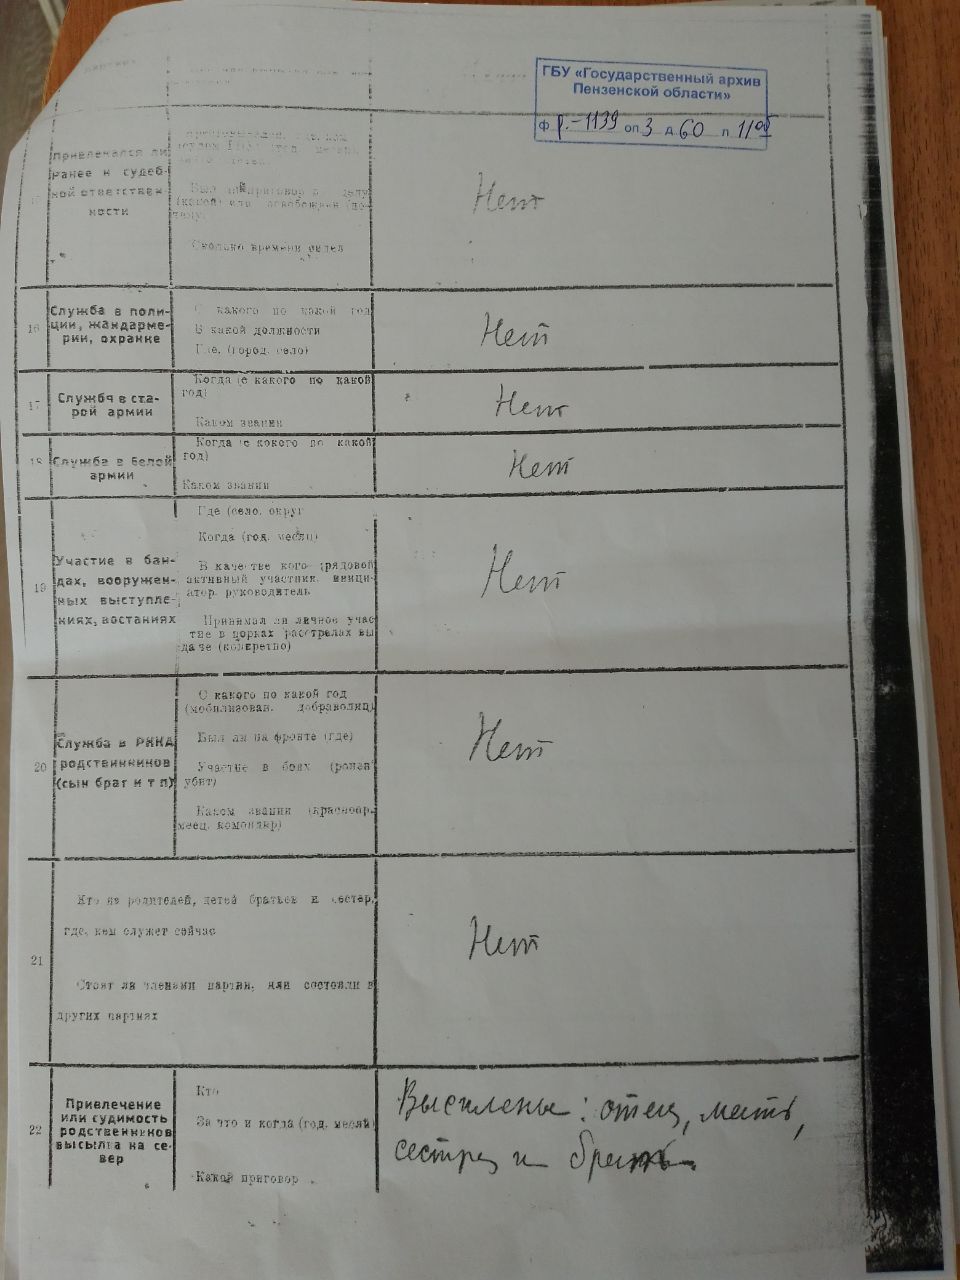 ГБУ «Государственный архив
Пензенской области»
ф р.-1139 оп 3 д 60 л 11об
Привлекался ли
ранее к судеб-
ной ответствен-
ности
Был ли приговор
(какой) или освобожден
Сколько времени сидел
Нет
16
Служба в поли-
ции, жандарме-
рии, охранке
С какого по какой год
В какой должности
Где, (город, село)
Нет
17
Служба в ста-
рой армии
Когда (с какого по какой
год)
Каком звании
Нет
18
Служба в белой
армии
Когда (с кокого по какой
год)
Каком звании
Нет
19
Участие в бан-
дах, вооружен-
ных выступле-
ниях, востаниях
Где (село, округ
Когда (год, месяц)
В качестве кого (рядовой
активный участник, иници-
атор, руководитель
Принимал ли личное учас-
тие в порках расстрелах вы
даче (конкретно)
Нет
20
Служба в РККА
родственников
(сын брат и т п)
С какого по какой год
(мобилизован, доброволец)
Был ли на фронте (где)
Участие в боях (ранен
убит)
Каком звании (красноар-
меец, командир)
Нет
21
Кто из родителей, детей братьев и сестер,
где, кем служет сейчас
Стоят ли членами партии, или состояли в
других партиях
Нет
22
Привлечение
или судимость
родственников
высылка на се-
вер
Кто
За что и когда (год, месяц)
Какой приговор
Высилены: отец, мать,
сестра и брать.